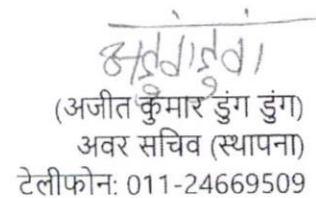 (अजीत कुमार डुंग डुंग)
अवर सचिव (स्थापना)
टेलीफोन: 011-24669509